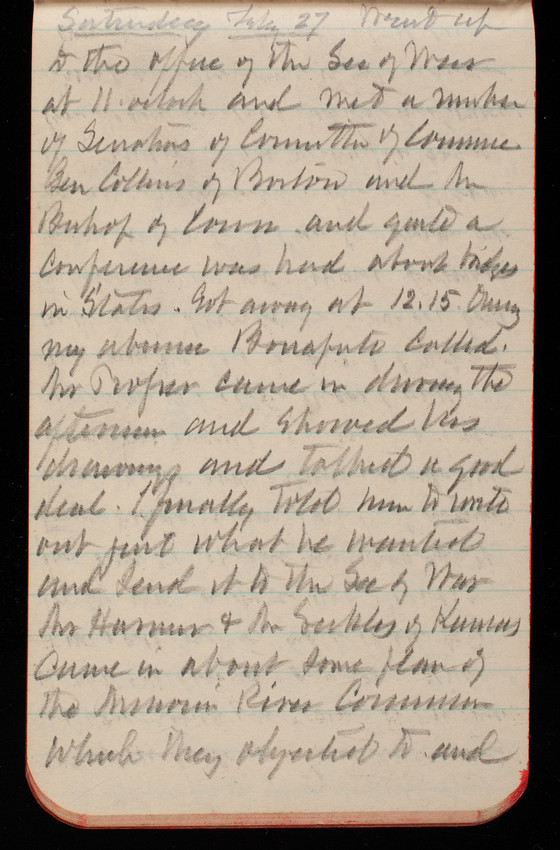 Saturday Feby 27 Went up
to the office of the Sec of War
at 11 oclock and met a number
of Senators of Committee of Commerce
Gen Collins of Boston and Mr
Bishop of Conn. and quite a
Conference was had about bridges
in States. Got away at 12.15. During
my absence Bonaparte Called.
Mr Prosser came in during the
afternoon and Showed his
drawings and talked a good
deal. I finally told him to write
out just what he wanted
and Send it to the Sec of War
Mr Harner & Mr Seckles of Kansas
Came in about Some plan of
the Missouri River Commission
which they objected to and